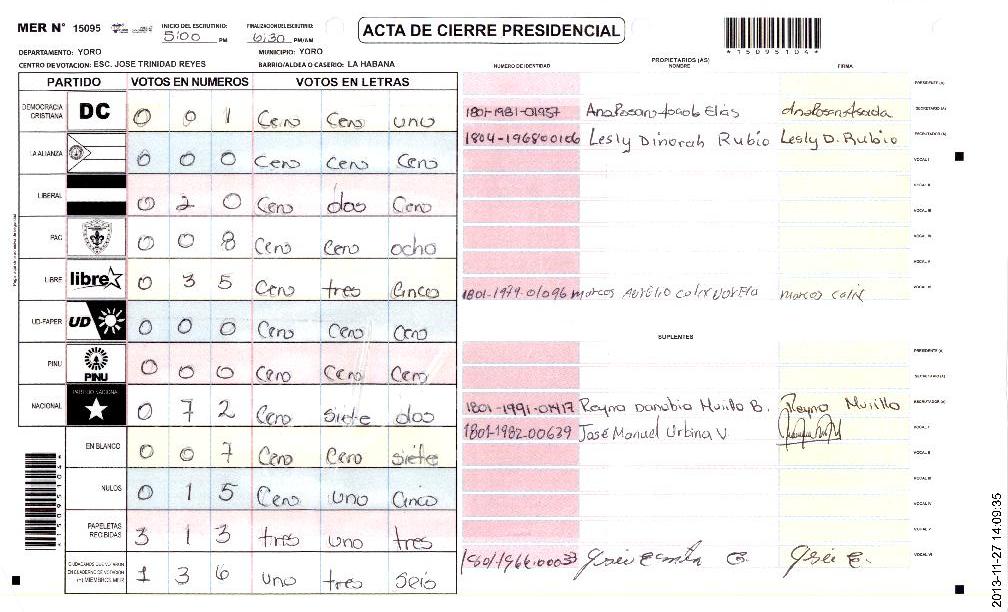 MER Nº 15095
INICIO DEL ESCRUTINIO: 5:00 PM
FINALIZACION DEL ESCRUTINIO: 6:30 PM/AM
ACTA DE CIERRE PRESIDENCIAL
*15095104*
DEPARTAMENTO: YORO
MUNICIPIO: YORO
CENTRO DE VOTACION: ESC. JOSE TRINIDAD REYES
BARRIO/ALDEA O CASERIO: LA HABANA
PARTIDO VOTOS EN NUMEROS VOTOS EN LETRAS
DEMOCRACIA CRISTIANA DC 0 0 1 Cero Cero uno
LA ALIANZA 0 0 0 Cero Cero Cero
LIBERAL 0 2 0 Cero dos Cero
PAC 0 0 8 Cero Cero ocho
LIBRE libre 0 3 5 Cero tres Cinco
UD-FAPER UD 0 0 0 Cero Cero Cero
PINU PINU 0 0 0 Cero Cero Cero
NACIONAL PARTIDO NACIONAL 0 7 2 Cero siete dos
EN BLANCO 0 0 7 Cero Cero siete
NULOS 0 1 5 Cero uno Cinco
PAPELETAS RECIBIDAS 3 1 3 tres uno tres
CIUDADANOS QUE VOTARON EN CUADERNO DE VOTACION (+) MIEMBROS MER 1 3 6 uno tres seis
*15095104*
PROPIETARIOS (AS)
NUMERO DE IDENTIDAD NOMBRE FIRMA
PRESIDENTE (A)
1801-1981-01957 SECRETARIO (A)
1804-1968-00106 Lesly Dinorah Rubio Lesly D. Rubio ESCRUTADOR (A)
VOCAL I
VOCAL II
VOCAL III
VOCAL IV
VOCAL V
1801-1979-01096 marcos AURELIO marcos VOCAL VI
SUPLENTES
PRESIDENTE (A)
SECRETARIO (A)
1801-1991-01417 Reyna Danubia Murillo B. Reyna Murillo ESCRUTADOR (A)
1801-1982-00639 José Manuel Urbina V. VOCAL I
VOCAL II
VOCAL III
VOCAL IV
VOCAL V
1801196600033 VOCAL VI
2013-11-27 14:09:35